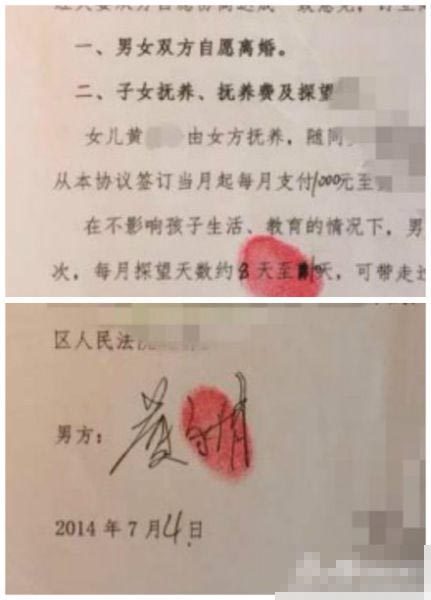 一、男女双方自愿离婚。
二、子女抚养、抚养费及探望
女儿黄 由女方抚养，随同
从本协议签订当月起每月支付1000元至
在不影响孩子生活、教育的情况下，男
次，每月探望天数约8天至 天，可带走过
区人民法
男方：黄
2014年7月4日